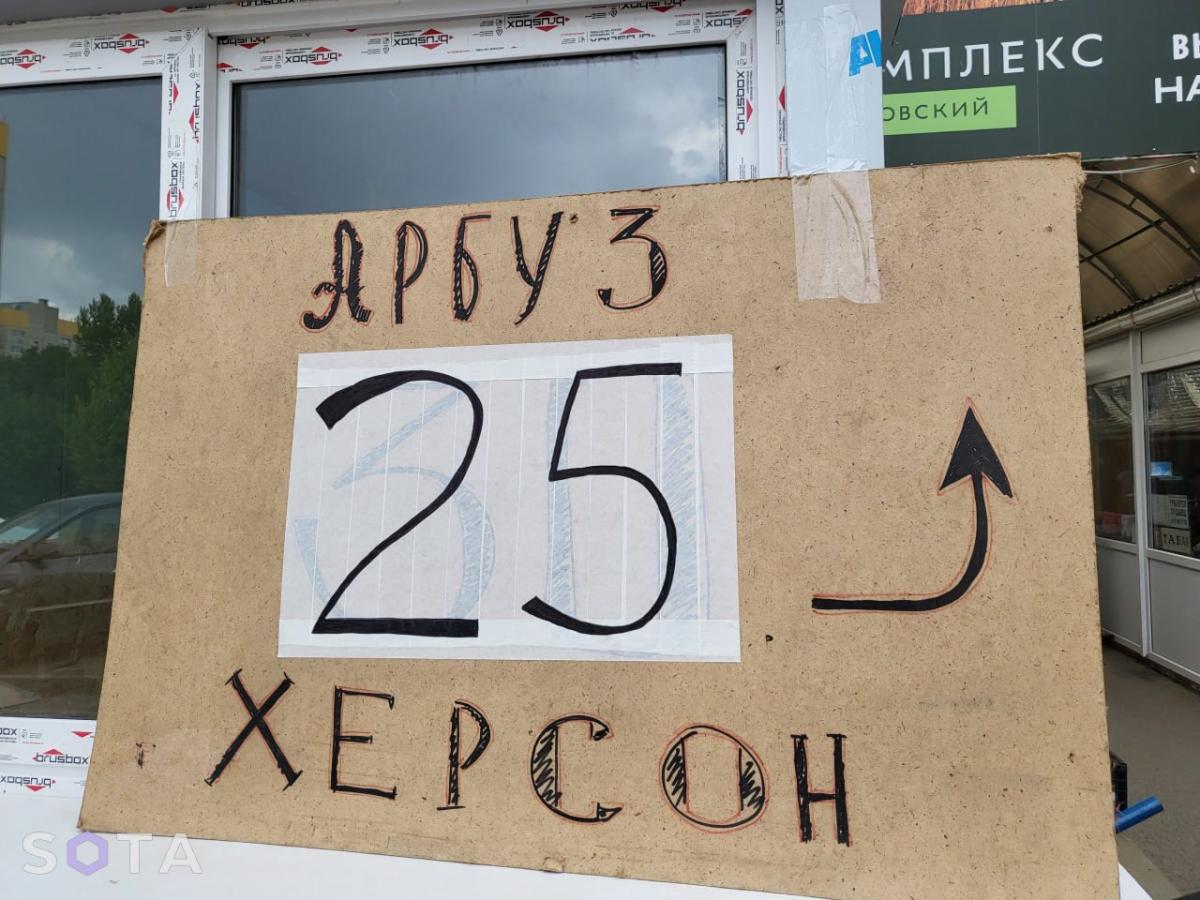 brusbox brusbox brusbox brusbox
МПЛЕКС
ВЫ
НА
ОВСКИЙ
brusbox
brusbox
АРБУЗ
25
ХЕРСОН
ТАБАК
brusbox
brusbox
SOTA